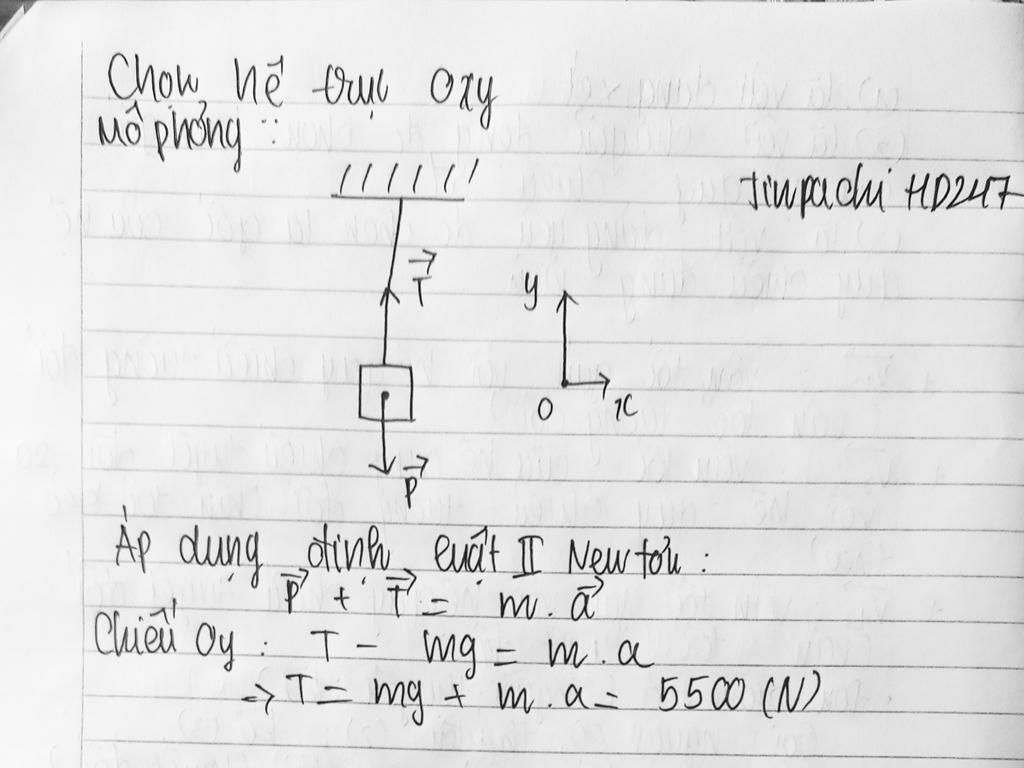 Chọn hề trục Oxy
Mô phỏng :
Jinpachi HD247
T
y
O
x
P
Áp dụng định luật II Newtơn :
P + T = m. a
Chiếu Oy : T - mg = m. a
=> T = mg + m. a = 5500 (N)